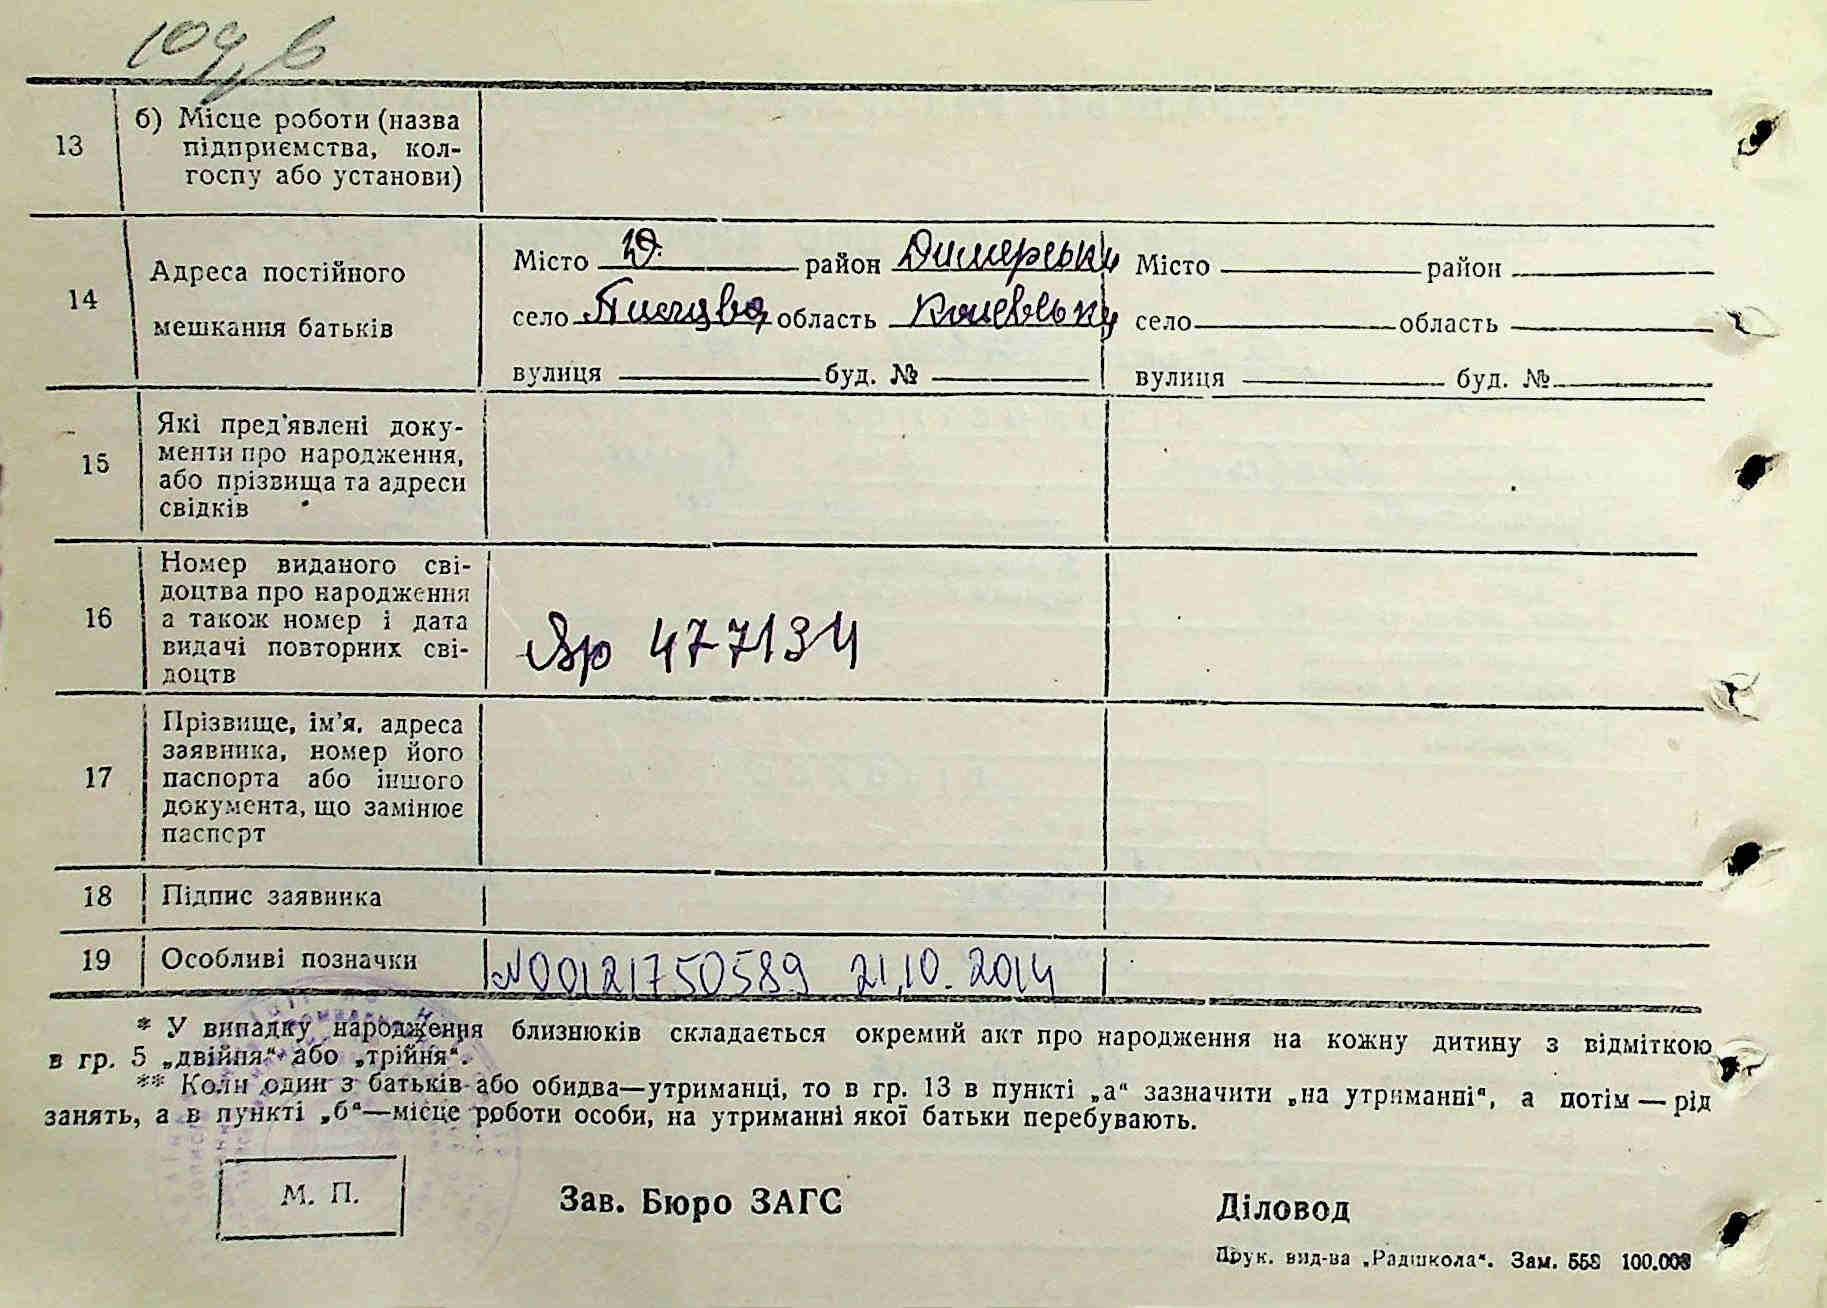 109, в
13
б) Місце роботи (назва
підприємства, кол-
госпу або установи)
14
Адреса постійного
мешкання батьків
Місто Ю. район Димерськи
село область
вулиця буд. №
Місто район
село область
вулиця буд. №
15
Які пред'явлені доку-
менти про народження,
або прізвища та адреси
свідків
16
Номер виданого сві-
доцтва про народження
а також номер і дата
видачі повторних сві-
доцтв
477134
17
Прізвище, ім'я, адреса
заявника, номер його
паспорта або іншого
документа, що замінює
паспорт
18
Підпис заявника
19
Особливі позначки
N00121750589 21.10.2014
* У випадку народження близнюків складається окремий акт про народження на кожну дитину з відміткою
в гр. 5 „двійня“ або „трійня“.
** Коли один з батьків або обидва—утриманці, то в гр. 13 в пункті „а“ зазначити „на утриманні“, а потім — рід
занять, а в пункті „б“—місце роботи особи, на утриманні якої батьки перебувають.
М. П.
Зав. Бюро ЗАГС
Діловод
Друк. вид-ва „Радшкола“. Зам. 558 100.000